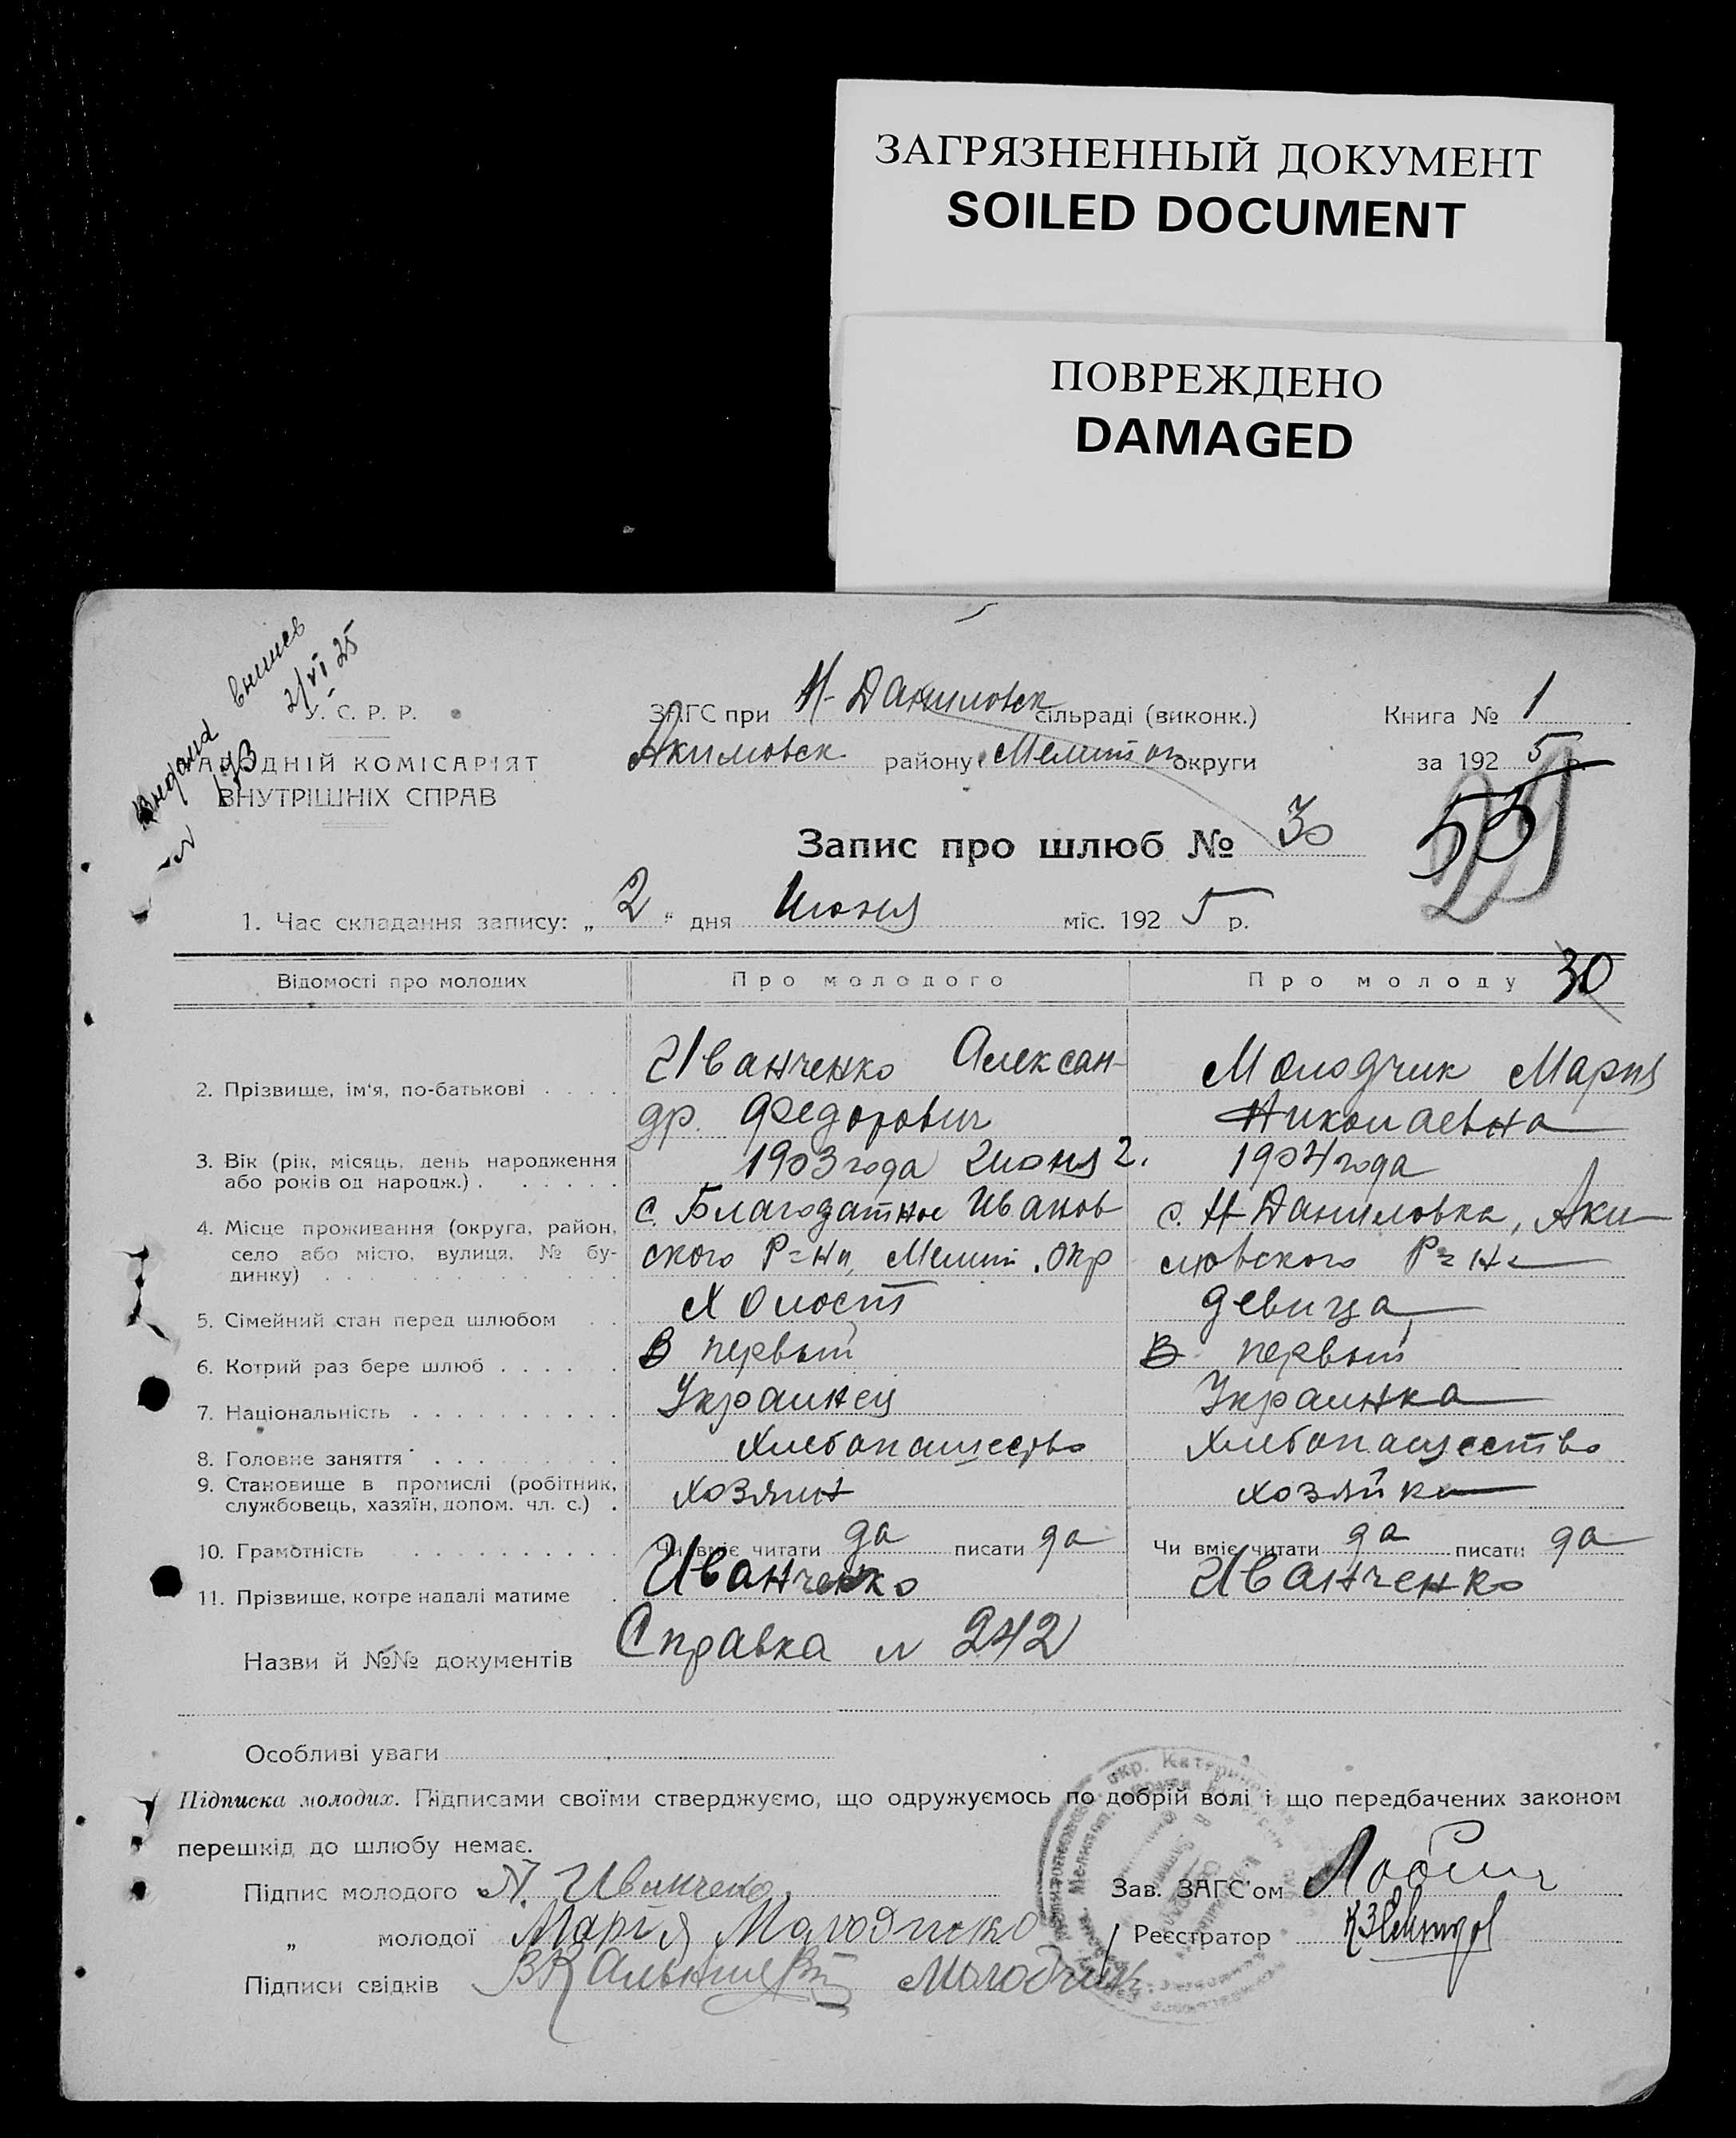 ЗАГРЯЗНЕННЫЙ ДОКУМЕНТ
SOILED DOCUMENT
ПОВРЕЖДЕНО
DAMAGED
Видана випись
2/VI 25
У. С. Р. Р.
НАРОДНІЙ КОМІСАРІЯТ
ВНУТРІШНІХ СПРАВ
ЗАГС при Н-Даниловск сільраді (виконк.)
Акимовск району Мелитоп округи
Книга № 1
за 1925 р.
55
Запис про шлюб № 30
1. Час складання запису: „2“ дня Июня міс. 1925 р.
Відомості про молодих Про молодого Про молоду 30
2. Прізвище, ім'я, по-батькові Иванченко Александр. Федорович Молодчик Мария Николаевна
3. Вік (рік, місяць, день народження або років од народж.) 1903 года Июня 2. 1904 года
4. Місце проживання (округа, район, село або місто, вулиця, № будинку) с. Благодатное Ивановского Р=на, Мелит. Окр с. Н-Даниловка, Акимовского Р=на
5. Сімейний стан перед шлюбом Холост девица
6. Котрий раз бере шлюб В первый В первый
7. Національність Украинец Украинка
8. Головне заняття Хлебопашество Хлебопашество
9. Становище в промислі (робітник, службовець, хазяїн, допом. чл. с.) хозяин хозяйка
10. Грамотність Чи вміє читати да писати да Чи вміє читати да писати да
11. Прізвище, котре надалі матиме Иванченко Иванченко
Назви й №№ документів Справка № 242
Особливі уваги
Підписка молодих. Підписами своїми стверджуємо, що одружуємось по добрій волі і що передбачених законом
перешкід до шлюбу немає.
Підпис молодого А. Иванченко
Зав. ЗАГС'ом
„ молодої Марія
Реєстратор
Підписи свідків Молодчик